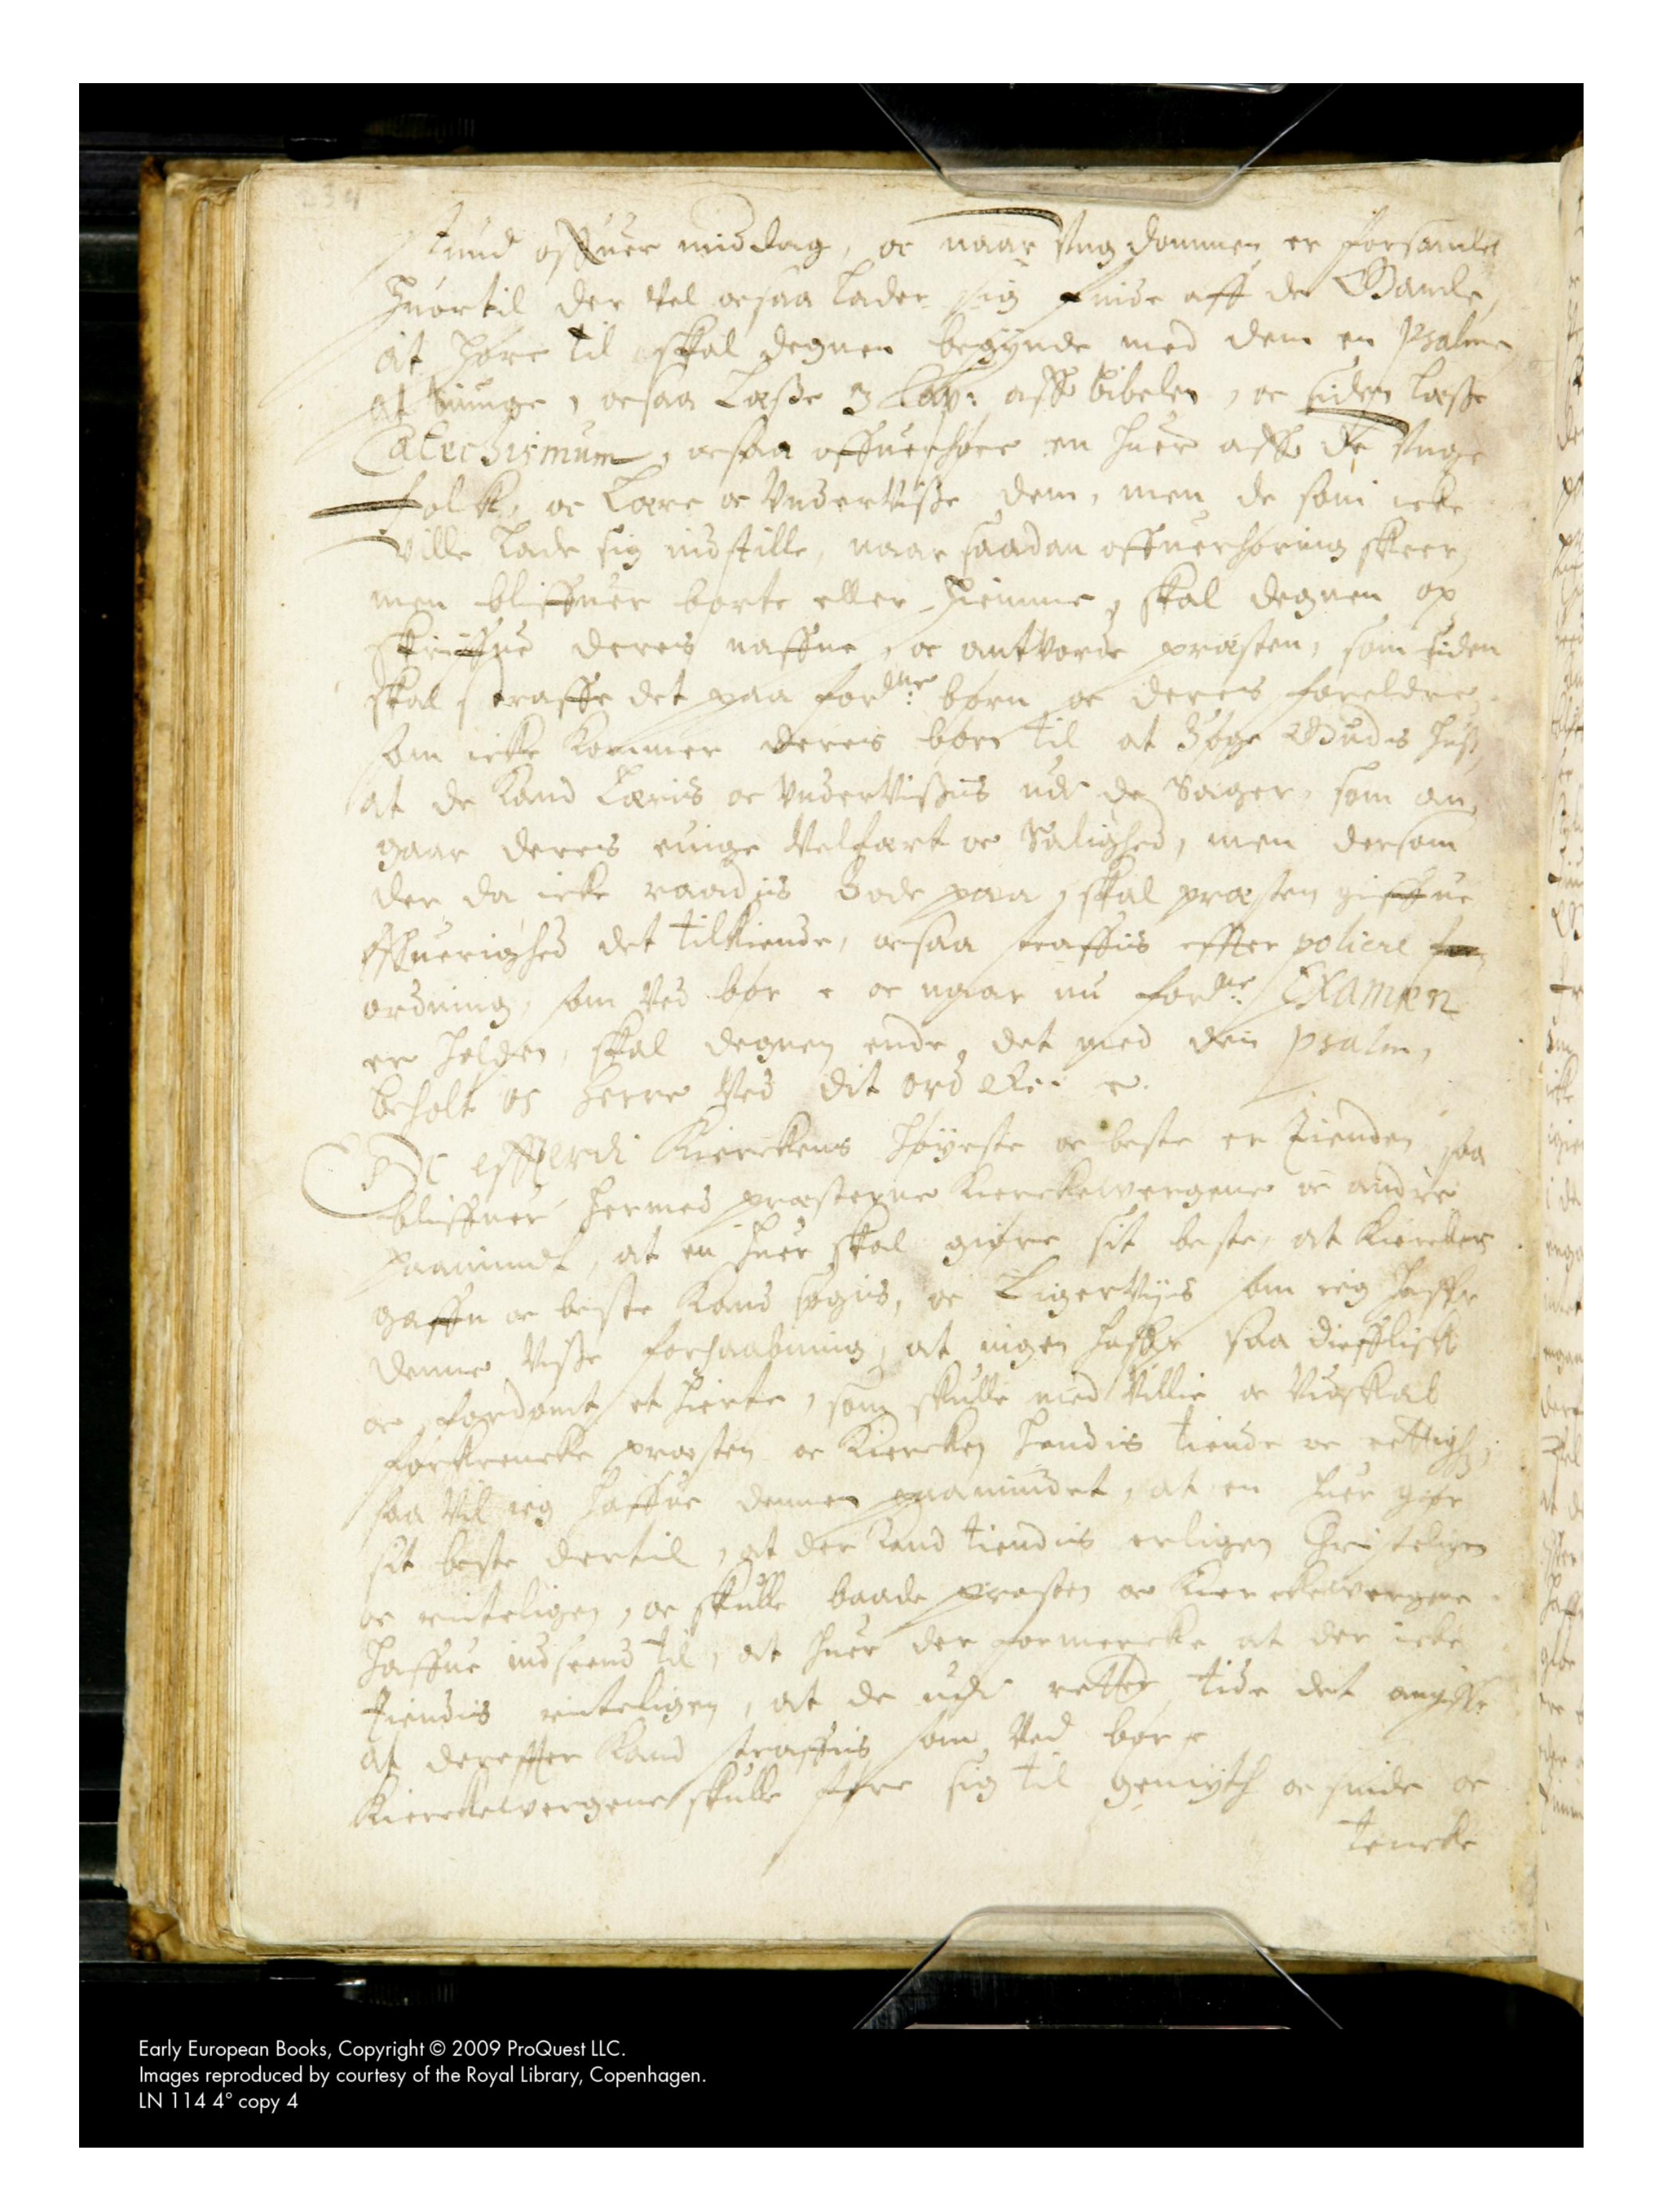 stund offuer middag, oc naar Vngdommen er forsamlet
Huortil der vel ocsaa lader sig finde aff de Gamle,
at høre til skal degnen begynde med dem en Psalme
at siunge, ocsaa Læsse 3 Cap: aff bibelen, oc siden læsse
Catechismum, ocsaa offuerhøre en huer aff de Vnge
folk, oc Lære oc VnderVisse dem, men de som icke
ville lade sig indstille, naar saadan offuerhøring skeer
men bliffuer borte eller hiemme, skal degnen op
skriffue deres naffne, oc antvorde præsten, som siden
skal straffe det paa fordne: børn oc deres foreldre
som icke kommer deres børn til at Søge Guds huss,
at de kand Læris oc VnderVissis udi de Sager, som an
gaar deres euige Velfart oc Salighed, men dersom
der da icke raadis Bode paa, skal præsten giffue
Øffuerighed det tilkiende, ocsaa straffis effter policie
ordning, som Ved bør oc naar nu fordne: Examen
er holden, skal degnen ende det med den psalm,
beholt os Herre Ved dit ord etc:
Oc effterdi Kierckens høyeste oc beste er Tienden, saa
bliffuer hermed præsterne Kierckewergene oc andre
paamindt, at en huer skal giøre sit beste, at Kierckens
gaffn oc beste Kand søgis, oc LigerViis som ieg haffr
denne Visse forhaabning, at ingen haffr saa diefflisk
oc fordømt et hierte, som skulle med Villie oc Vidskab
forkrencke præsten oc Kiercken hendis tiende oc rettigh:
saa Vil ieg haffue dennem paamindet, at en huer giør
sit beste dertil, at der kand tiendis erligen Christeligen
oc rinteligen, oc skulle baade præsten oc Kierckewergene
haffue indseend til, at huer der formercke at der icke
Tiendis rinteligen, at de udi retter tide det angiffe
at dereffter kand straffis som Ved bør
Kierckewergene skulle føre sig til gemyth oc sinde oc
tencke
Early European Books, Copyright © 2009 ProQuest LLC.
Images reproduced by courtesy of the Royal Library, Copenhagen.
LN 114 4° copy 4